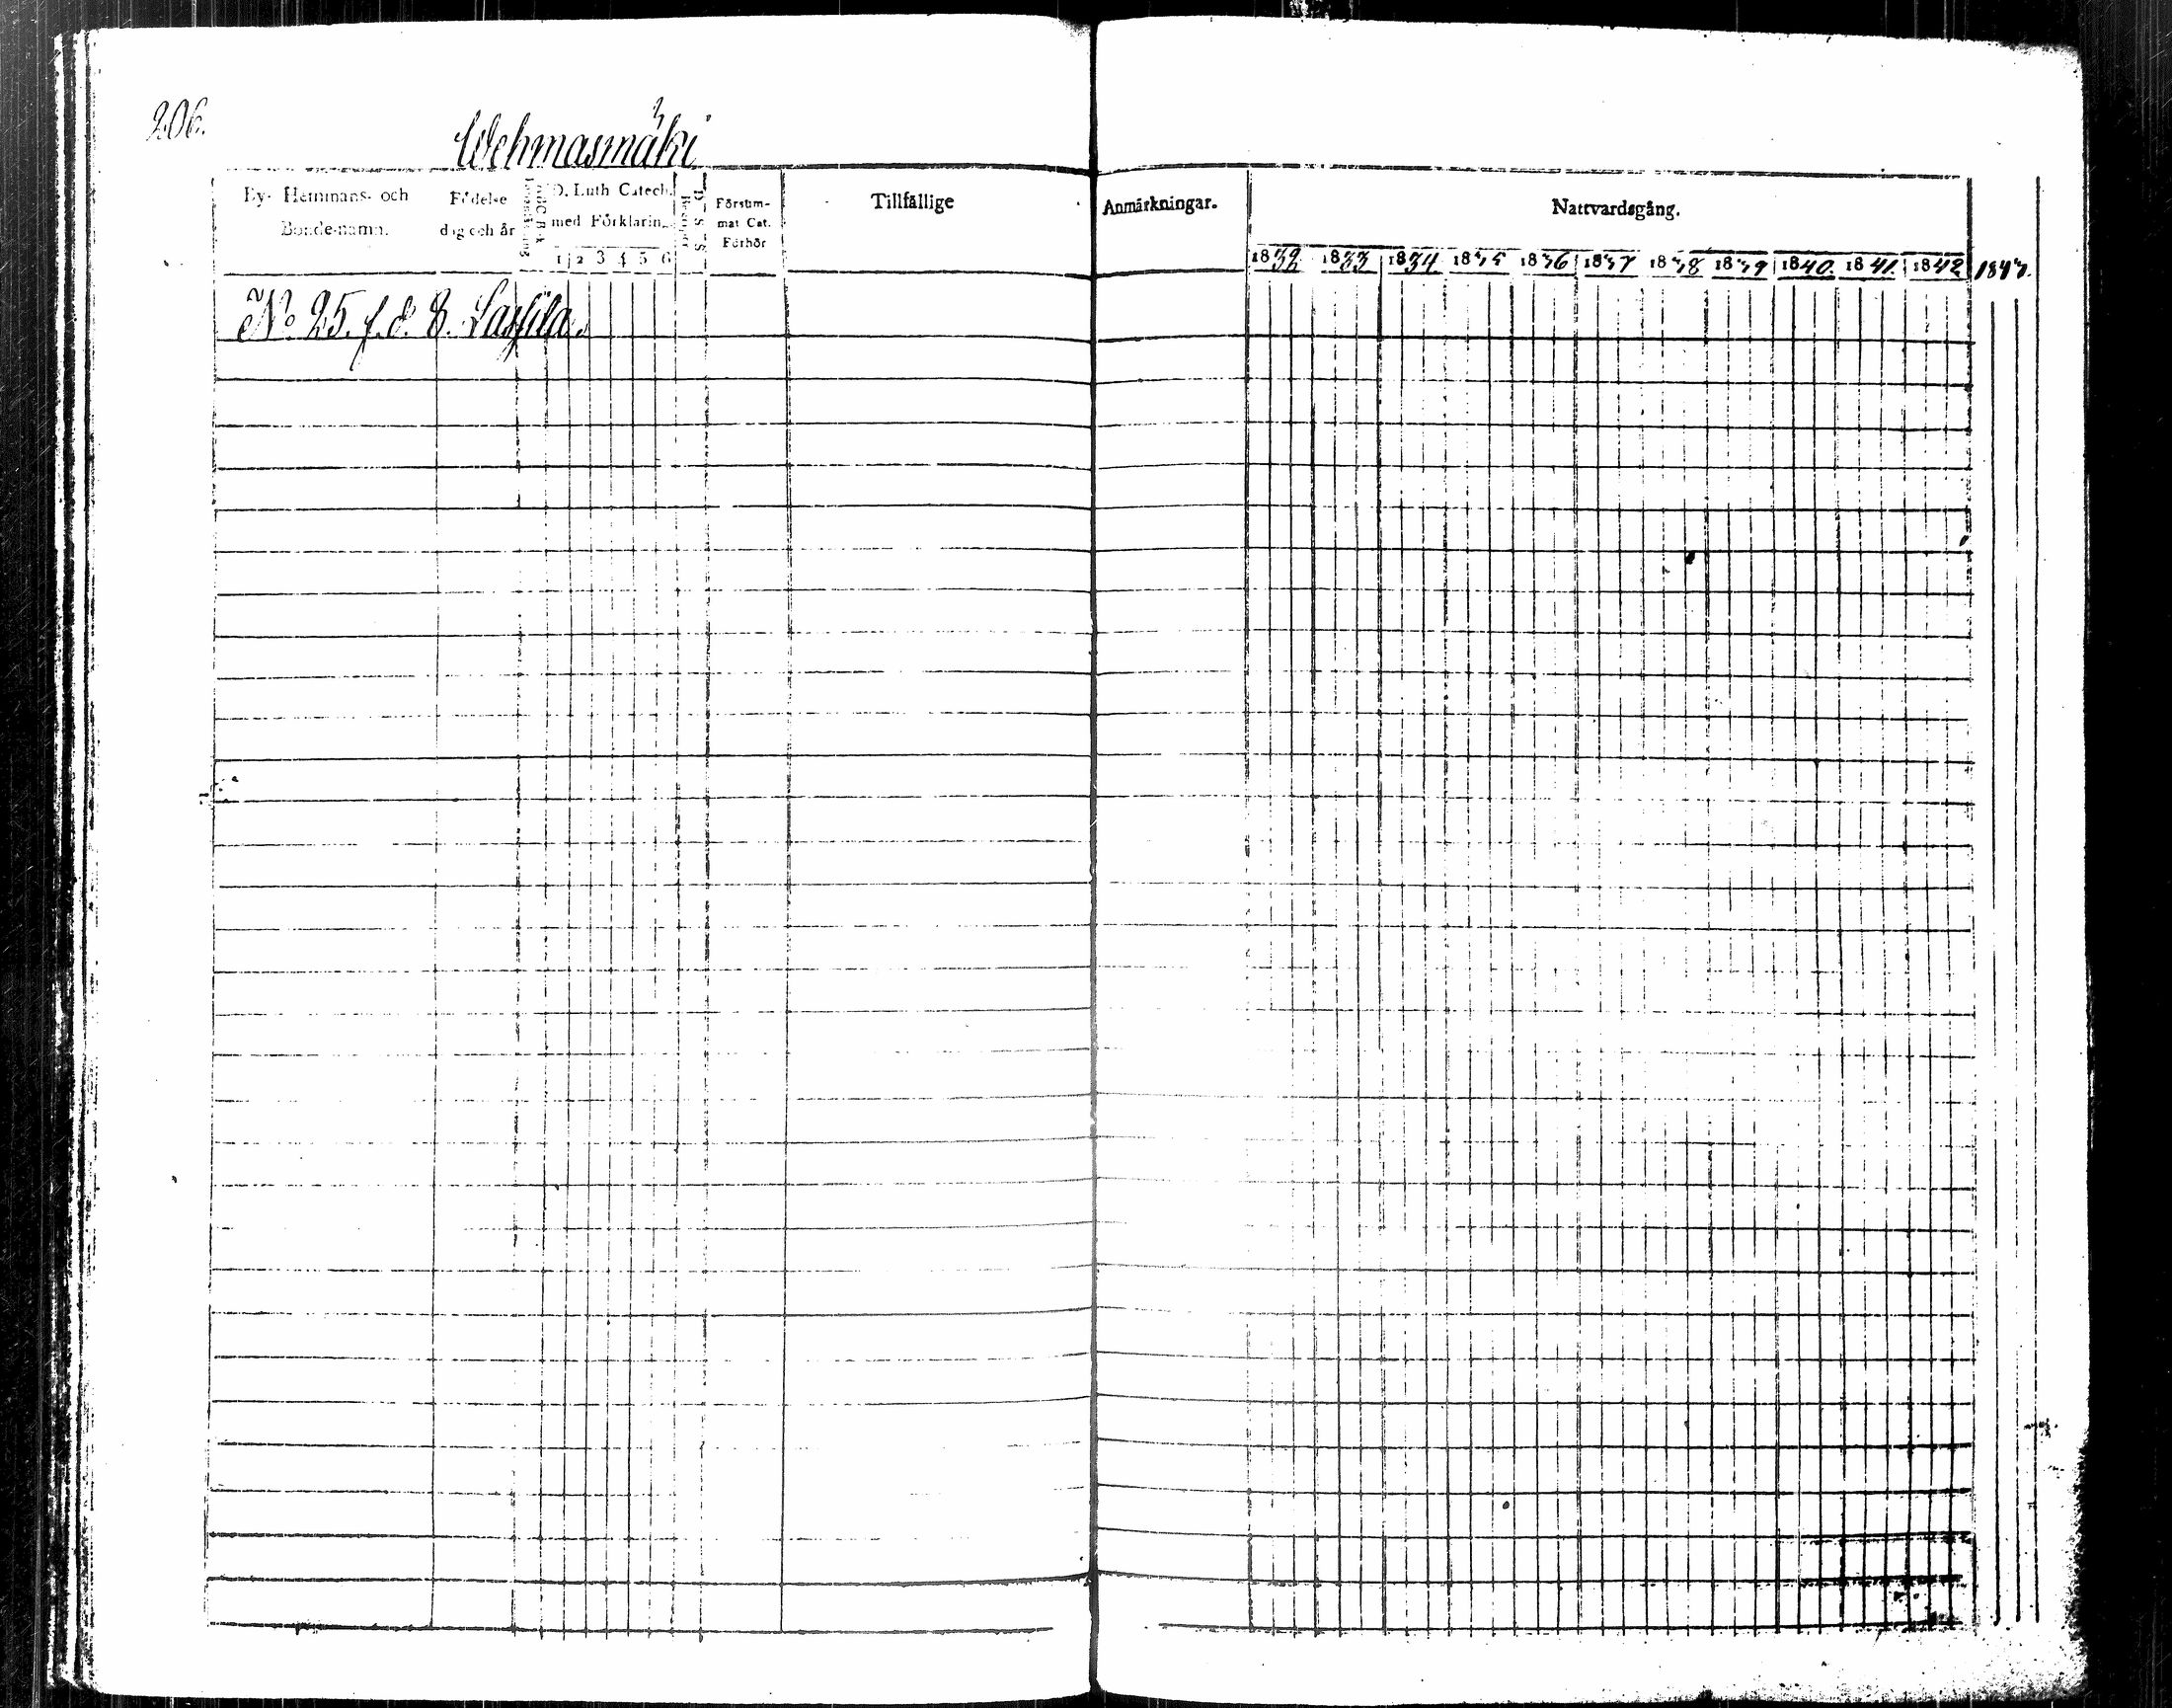 206.
Wehmasmäki
By- Hemmans- och Bonde-namn.
Födelse dag och år
D. Luth. Catech. med Förklaring
1 2 3 4 5 6
D. S. S.
Försum- mat Cat. Förhör
Tillfällige
Anmärkningar.
Nattvardsgång.
1832 1833 1834 1835 1836 1837 1838 1839 1840. 1841. 1842 1843.
No 25. f. d. 8. Lassila.